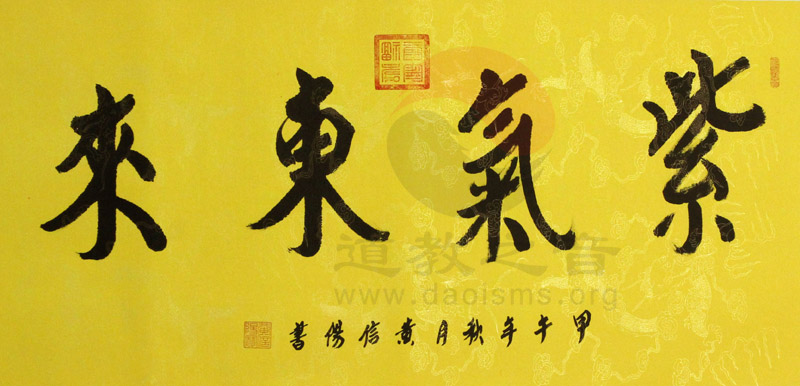 紫氣東來
甲午年秋月黄信陽書
道教之音
www.daoisms.org